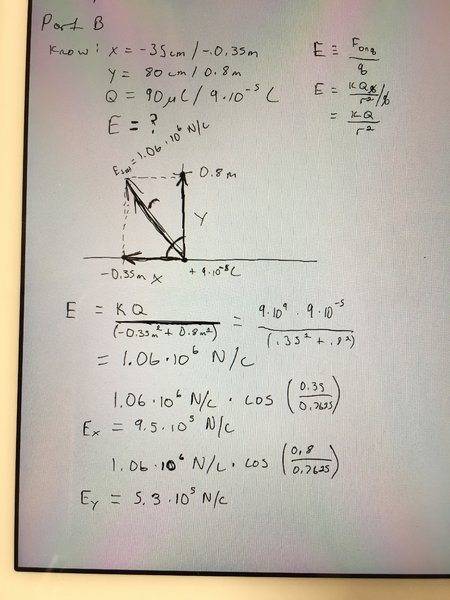 Part B
Know: X = -35cm / -.0.35m
Y = 80cm / 0.8m
Q = 90μC / 9·10⁻⁵ C
E = ?
E ≡ F_onq / q
E = KQq/r² / q
= KQ / r²
= 1.06·10⁶ N/C
0.8m
r
Y
-0.35m X
+9·10⁻⁵C
E = KQ / (-0.35m² + 0.8m²) = 9·10⁹ · 9·10⁻⁵ / (.35² + .8²)
= 1.06·10⁶ N/C
1.06·10⁶ N/C · cos (0.35 / 0.7625)
Ex = 9.5·10⁵ N/C
1.06·10⁶ N/C · cos (0.8 / 0.7625)
Ey = 5.3·10⁵ N/C